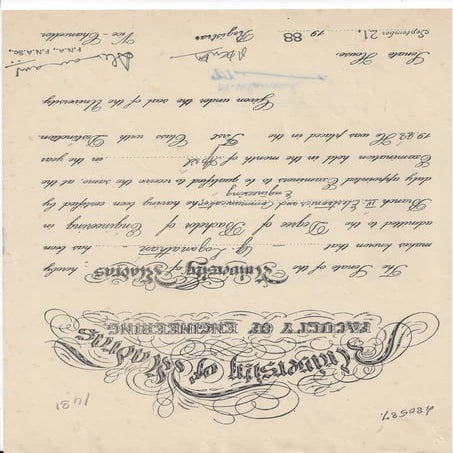 280587.
1431
University of Madras
FACULTY OF ENGINEERING
The Senate of the University of Madras hereby
makes known that G. Loganathan has been
admitted to the Degree of Bachelor of Engineering in
Branch IV Electronics and Communication Engineering he having been certified by
duly appointed Examiners to be qualified to receive the same, at the
Examination held in the month of April in the year
1988 He was placed in the First Class with Distinction.
Given under the seal of the University
Senate House,
September 21, 1988
Registrar.
F.N.A., F.N.A.Sc.,
Vice-Chancellor